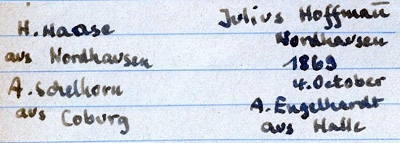 H. Haase
aus Nordhausen
A. Schelhorn
aus Coburg
Julius Hoffmañ
Nordhausen
1869
4. October
A. Engelhardt
aus Halle